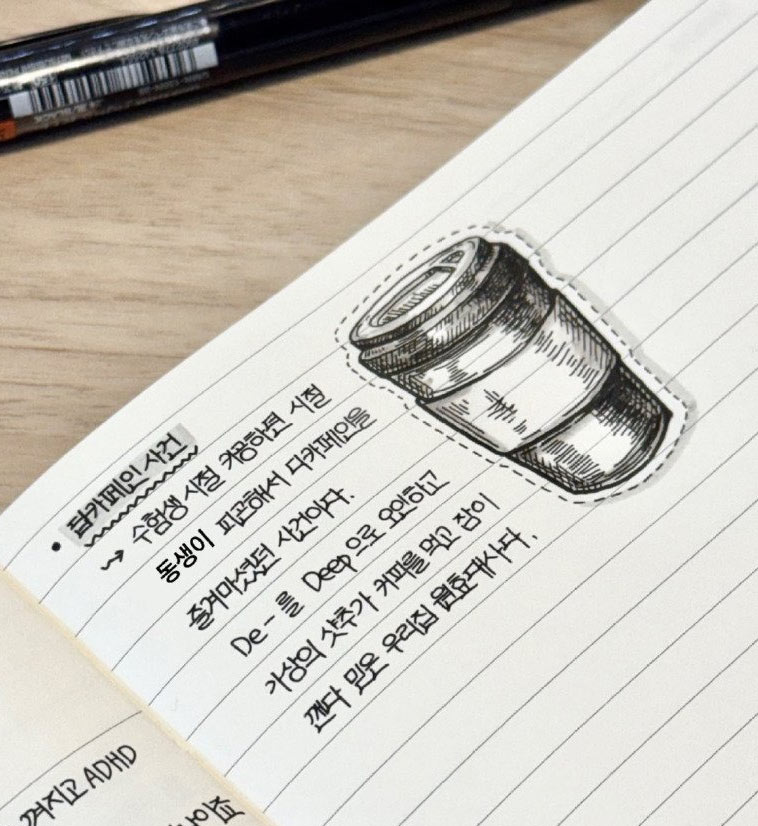 • 딥카페인 사건
→ 수험생 시절 카공하던 시절
동생이 피곤해서 디카페인을
즐겨마셨던 사건이다.
De-를 Deep으로 오인하고
가상의 샷추가 커피를 먹고 잠이
깬다 믿은 우리집 원효대사다.
껴지고 ADHD